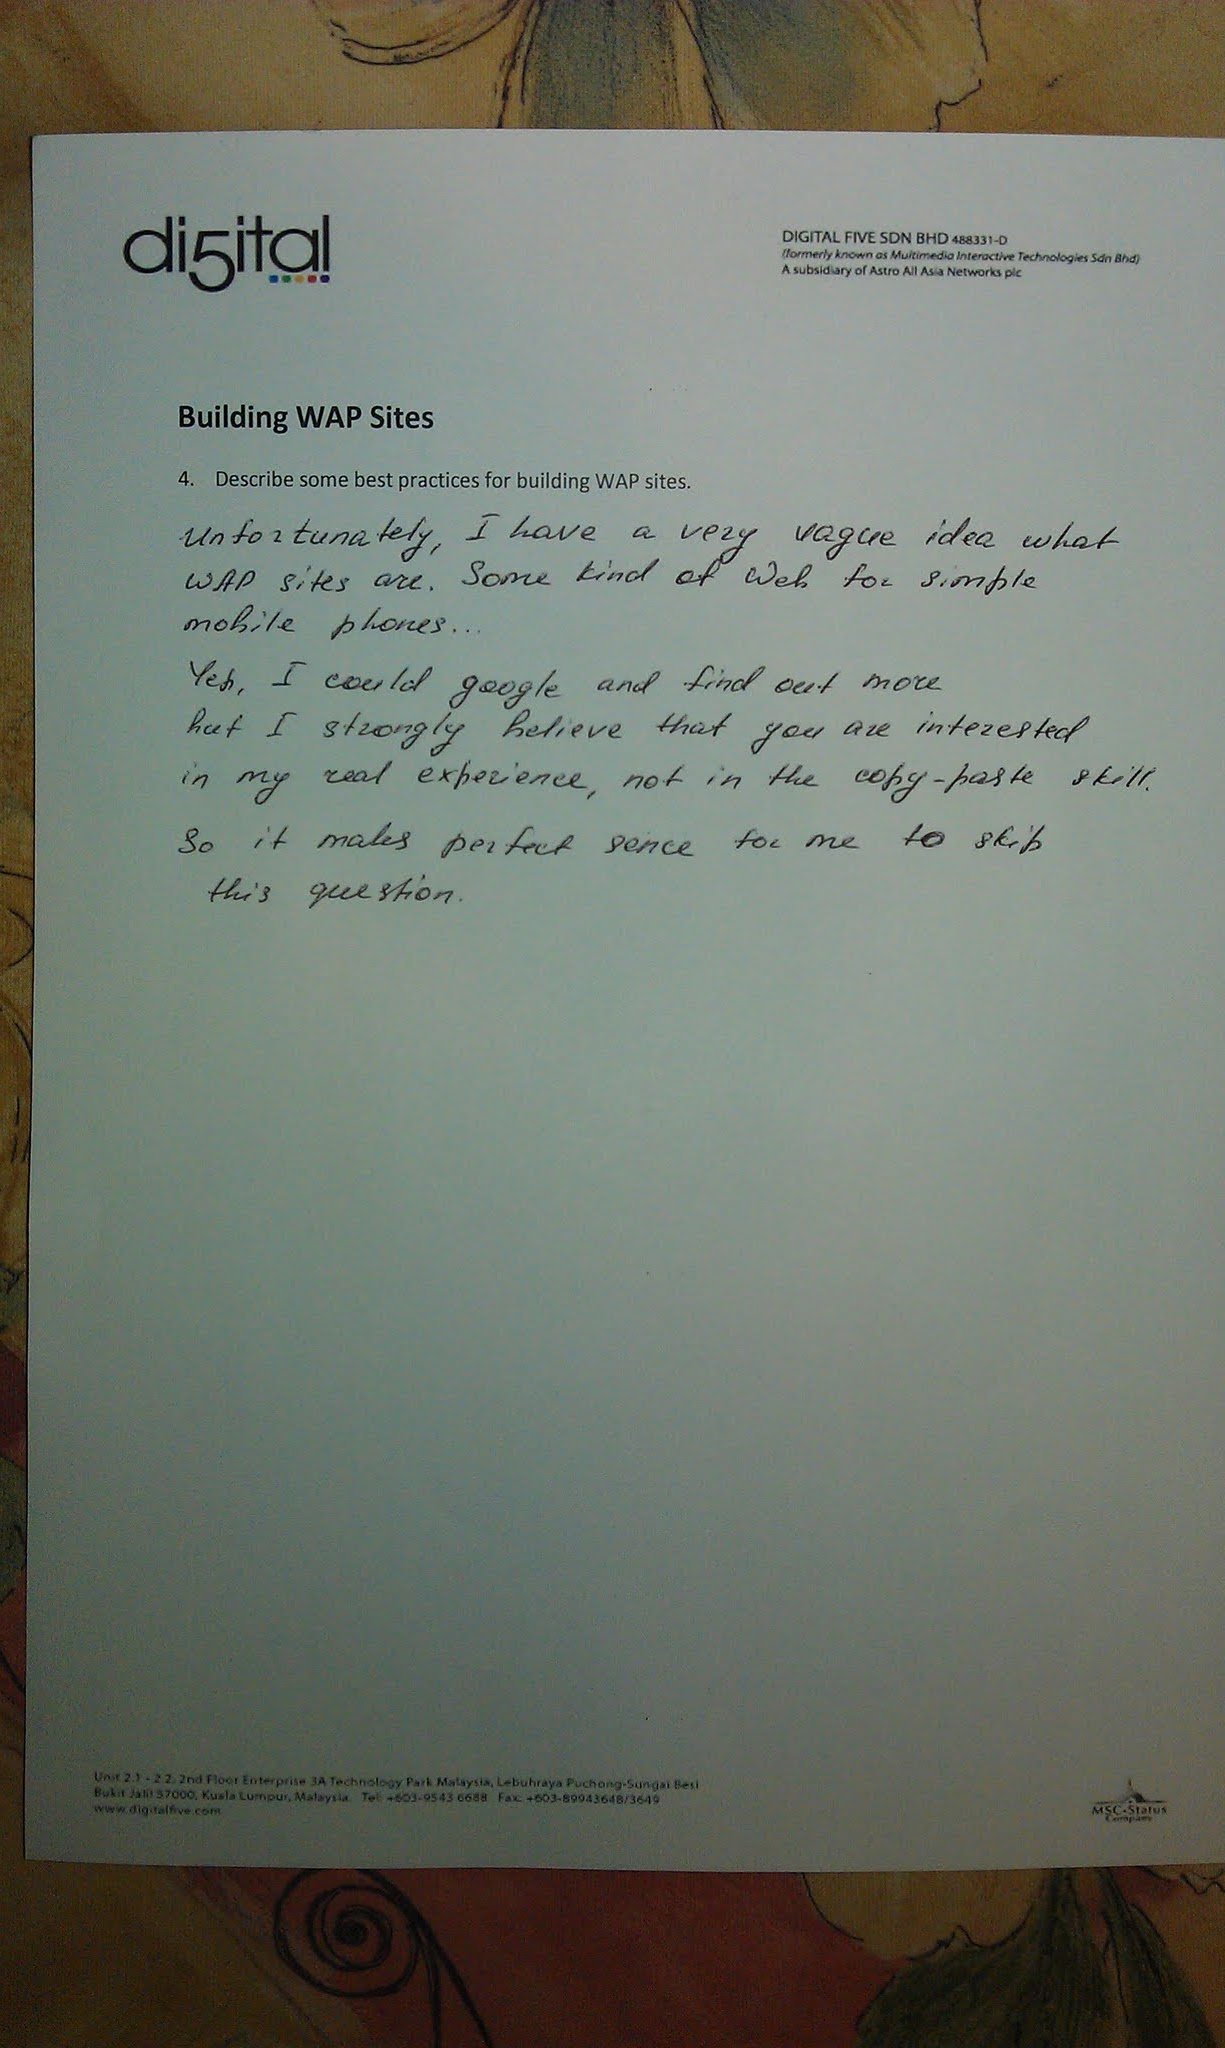 di5ital
DIGITAL FIVE SDN BHD 488331-D
(formerly known as Multimedia Interactive Technologies Sdn Bhd)
A subsidiary of Astro All Asia Networks plc
Building WAP Sites
4. Describe some best practices for building WAP sites.
Unfortunately, I have a very vague idea what
WAP sites are. Some kind of Web for simple
mobile phones...
Yes, I could google and find out more
but I strongly believe that you are interested
in my real experience, not in the copy-paste skill.
So it makes perfect sence for me to skip
this question.
Unit 2.1 - 2.2, 2nd Floor Enterprise 3A Technology Park Malaysia, Lebuhraya Puchong-Sungai Besi
Bukit Jalil 57000, Kuala Lumpur, Malaysia. Tel: +603-9543 6688 Fax: +603-89943648/3649
www.digitalfive.com
MSC-Status
Company